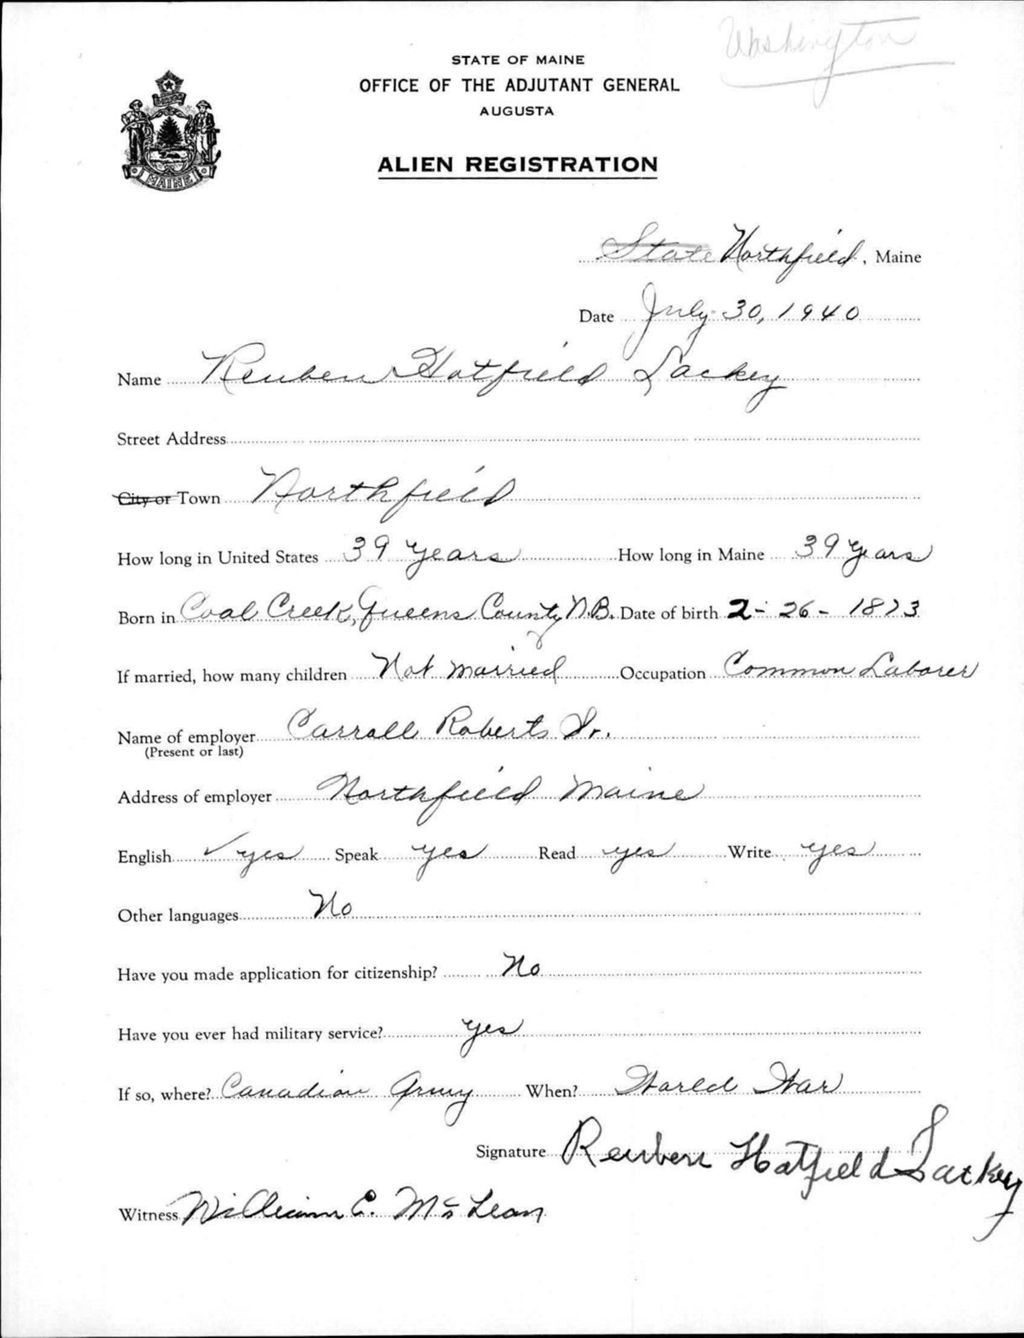 Washington
STATE OF MAINE
OFFICE OF THE ADJUTANT GENERAL
AUGUSTA
ALIEN REGISTRATION
MAINE
State Northfield, Maine
Date July 30, 1940
Name Reuben Hatfield Lackey
Street Address
City or Town Northfield
How long in United States 39 years How long in Maine 39 years
Born in Coal Creek, Queens County N.B. Date of birth 2-26-1873
If married, how many children Not married Occupation Common Laborer
Name of employer Carroll Roberts Sr.
(Present or last)
Address of employer Northfield Maine
English ✓ yes Speak yes Read yes Write yes
Other languages No
Have you made application for citizenship? No
Have you ever had military service? yes
If so, where? Canadian Army When? World War
Signature Reuben Hatfield Lackey
Witness William E. McLean